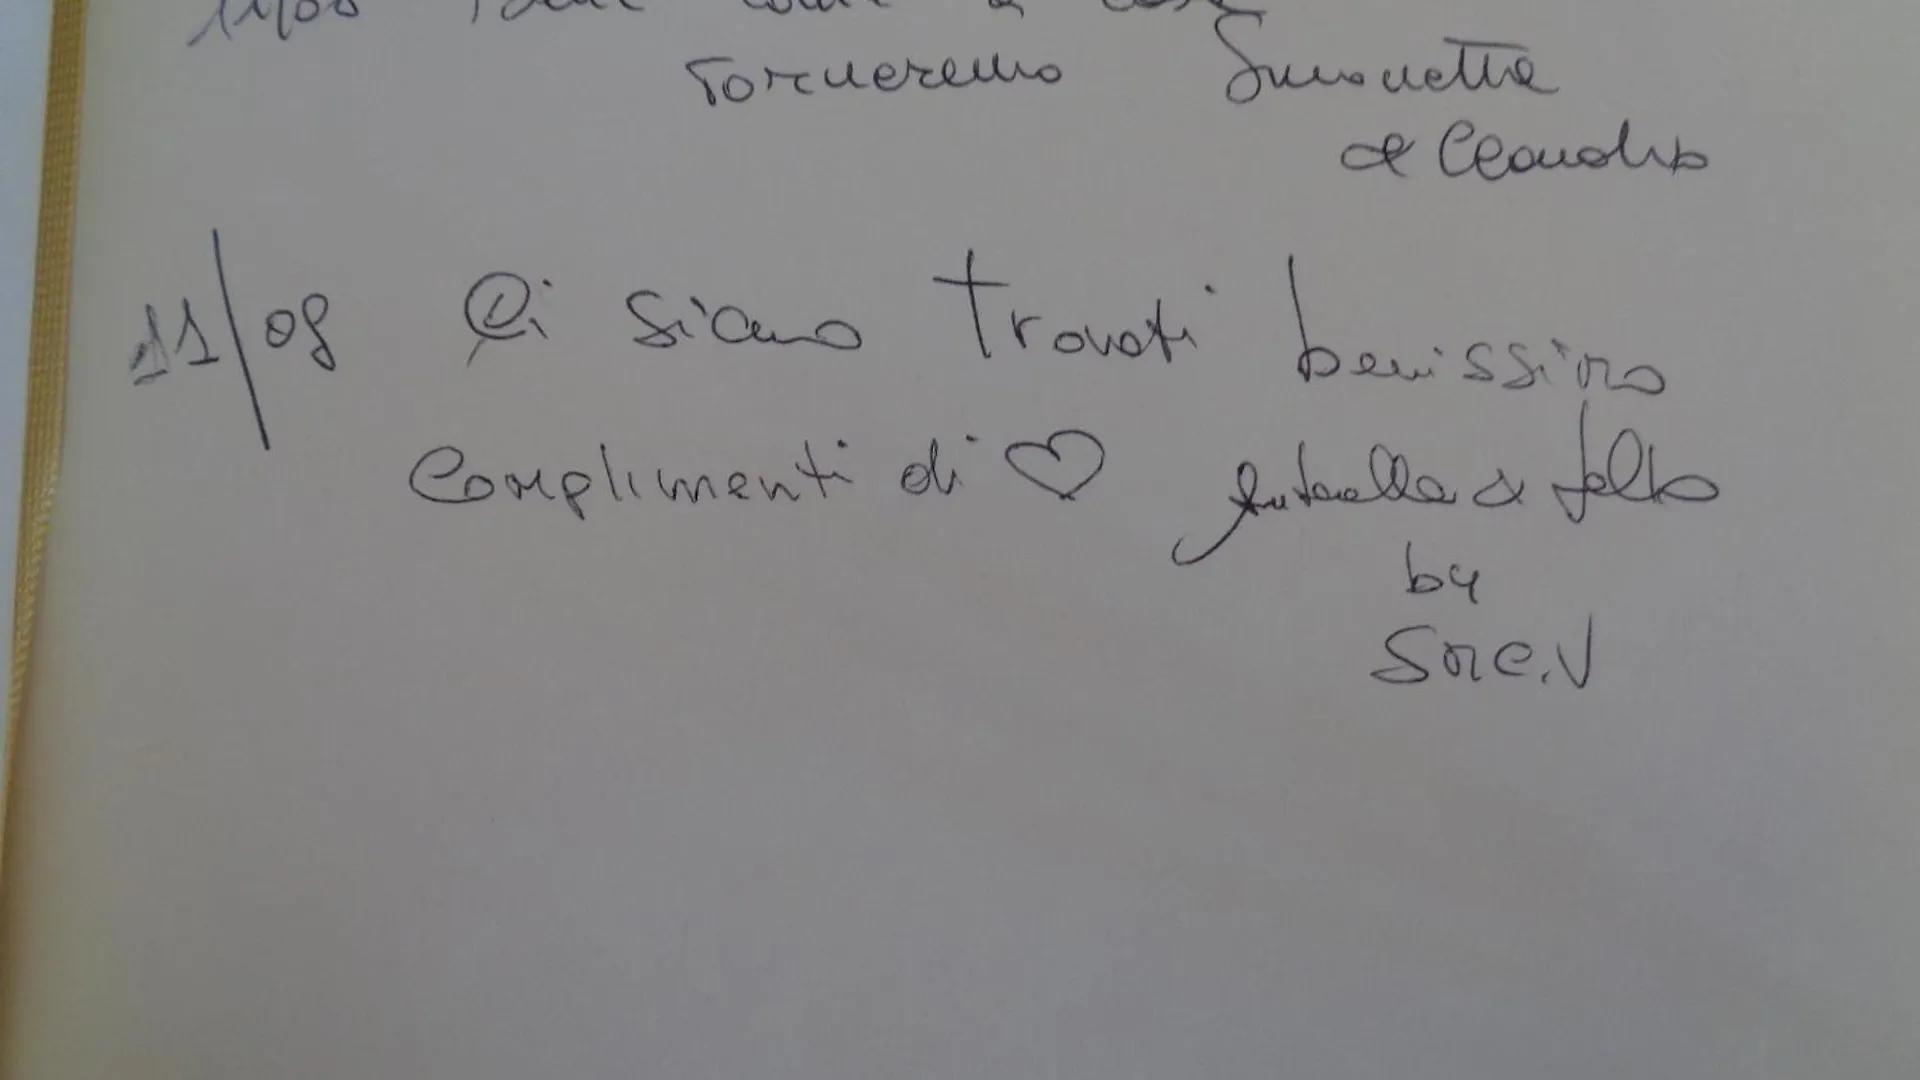 Torneremo Simonetta
e Claudio
11/08 Ci siamo trovati benissimo
Complimenti di ♡ Antonella e
by